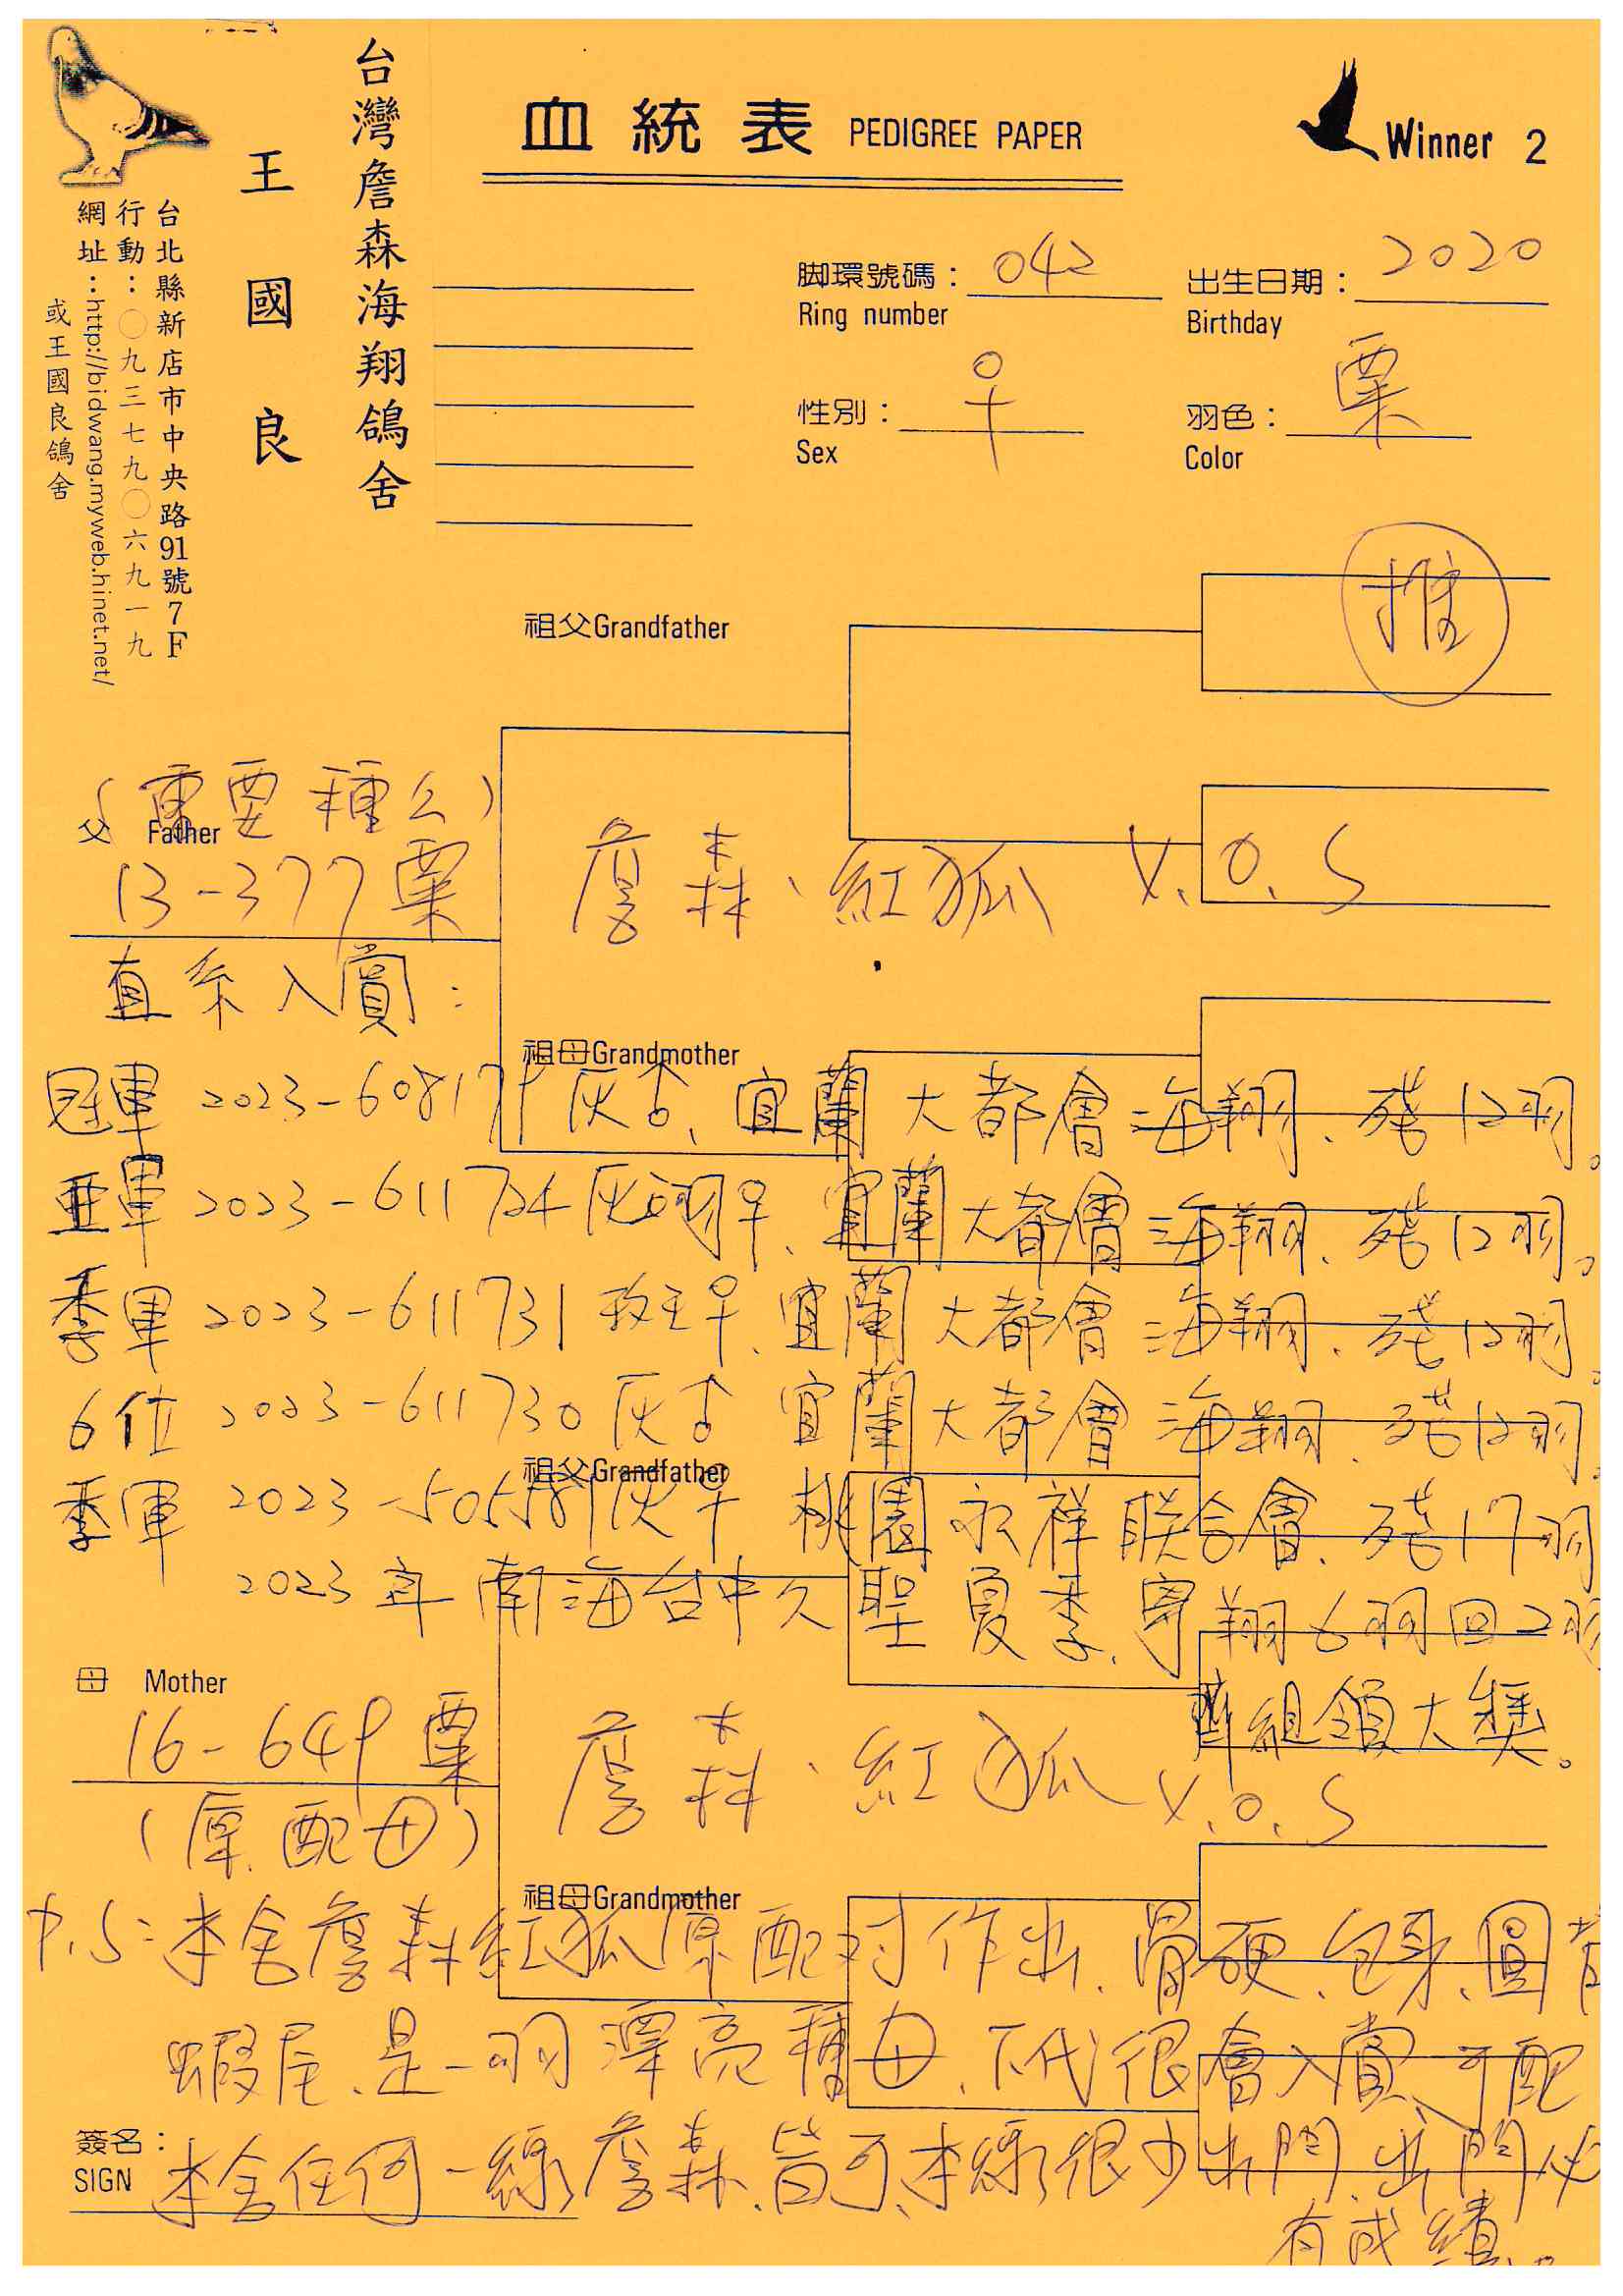 台灣詹森海翔鴿舍
王國良
台北縣新店市中央路91號7F
行動：〇九三七九〇六九一九
網址：http://bidwang.myweb.hinet.net/
或王國良鴿舍
血統表 PEDIGREE PAPER
Winner 2
脚環號碼： 042
Ring number
出生日期： 2020
Birthday
性別： ♀
Sex
羽色： 栗
Color
推
祖父Grandfather
(重要種公)
父 Father
13-377栗
詹森、紅狐 V.O.S
直系入賞：
祖母Grandmother
冠軍 2023-608179灰♂、宜蘭大都會海翔、殘12羽。
亞軍 2023-611724灰 ♀、宜蘭大都會海翔、殘12羽。
季軍 2023-611731斑♀、宜蘭大都會海翔、殘12羽。
6位 2023-611730灰♂ 宜蘭大都會海翔、殘12羽。
祖父Grandfather
季軍 2023 灰♀ 桃園永祥联合會、殘17羽
2023年南海台中久聖夏季、寄翔6羽回2羽
齊組領大獎。
母 Mother
16-649栗
詹森、紅狐 V.O.S
(原配母)
祖母Grandmother
P.S：本舍詹森紅狐原配对作出、骨硬、包身、圓背
蝦尾、是一羽漂亮種母、下代很會入賞、可配
簽名：
SIGN
本舍任何一線詹森、皆可、本線很少出門、出門必
有成績。